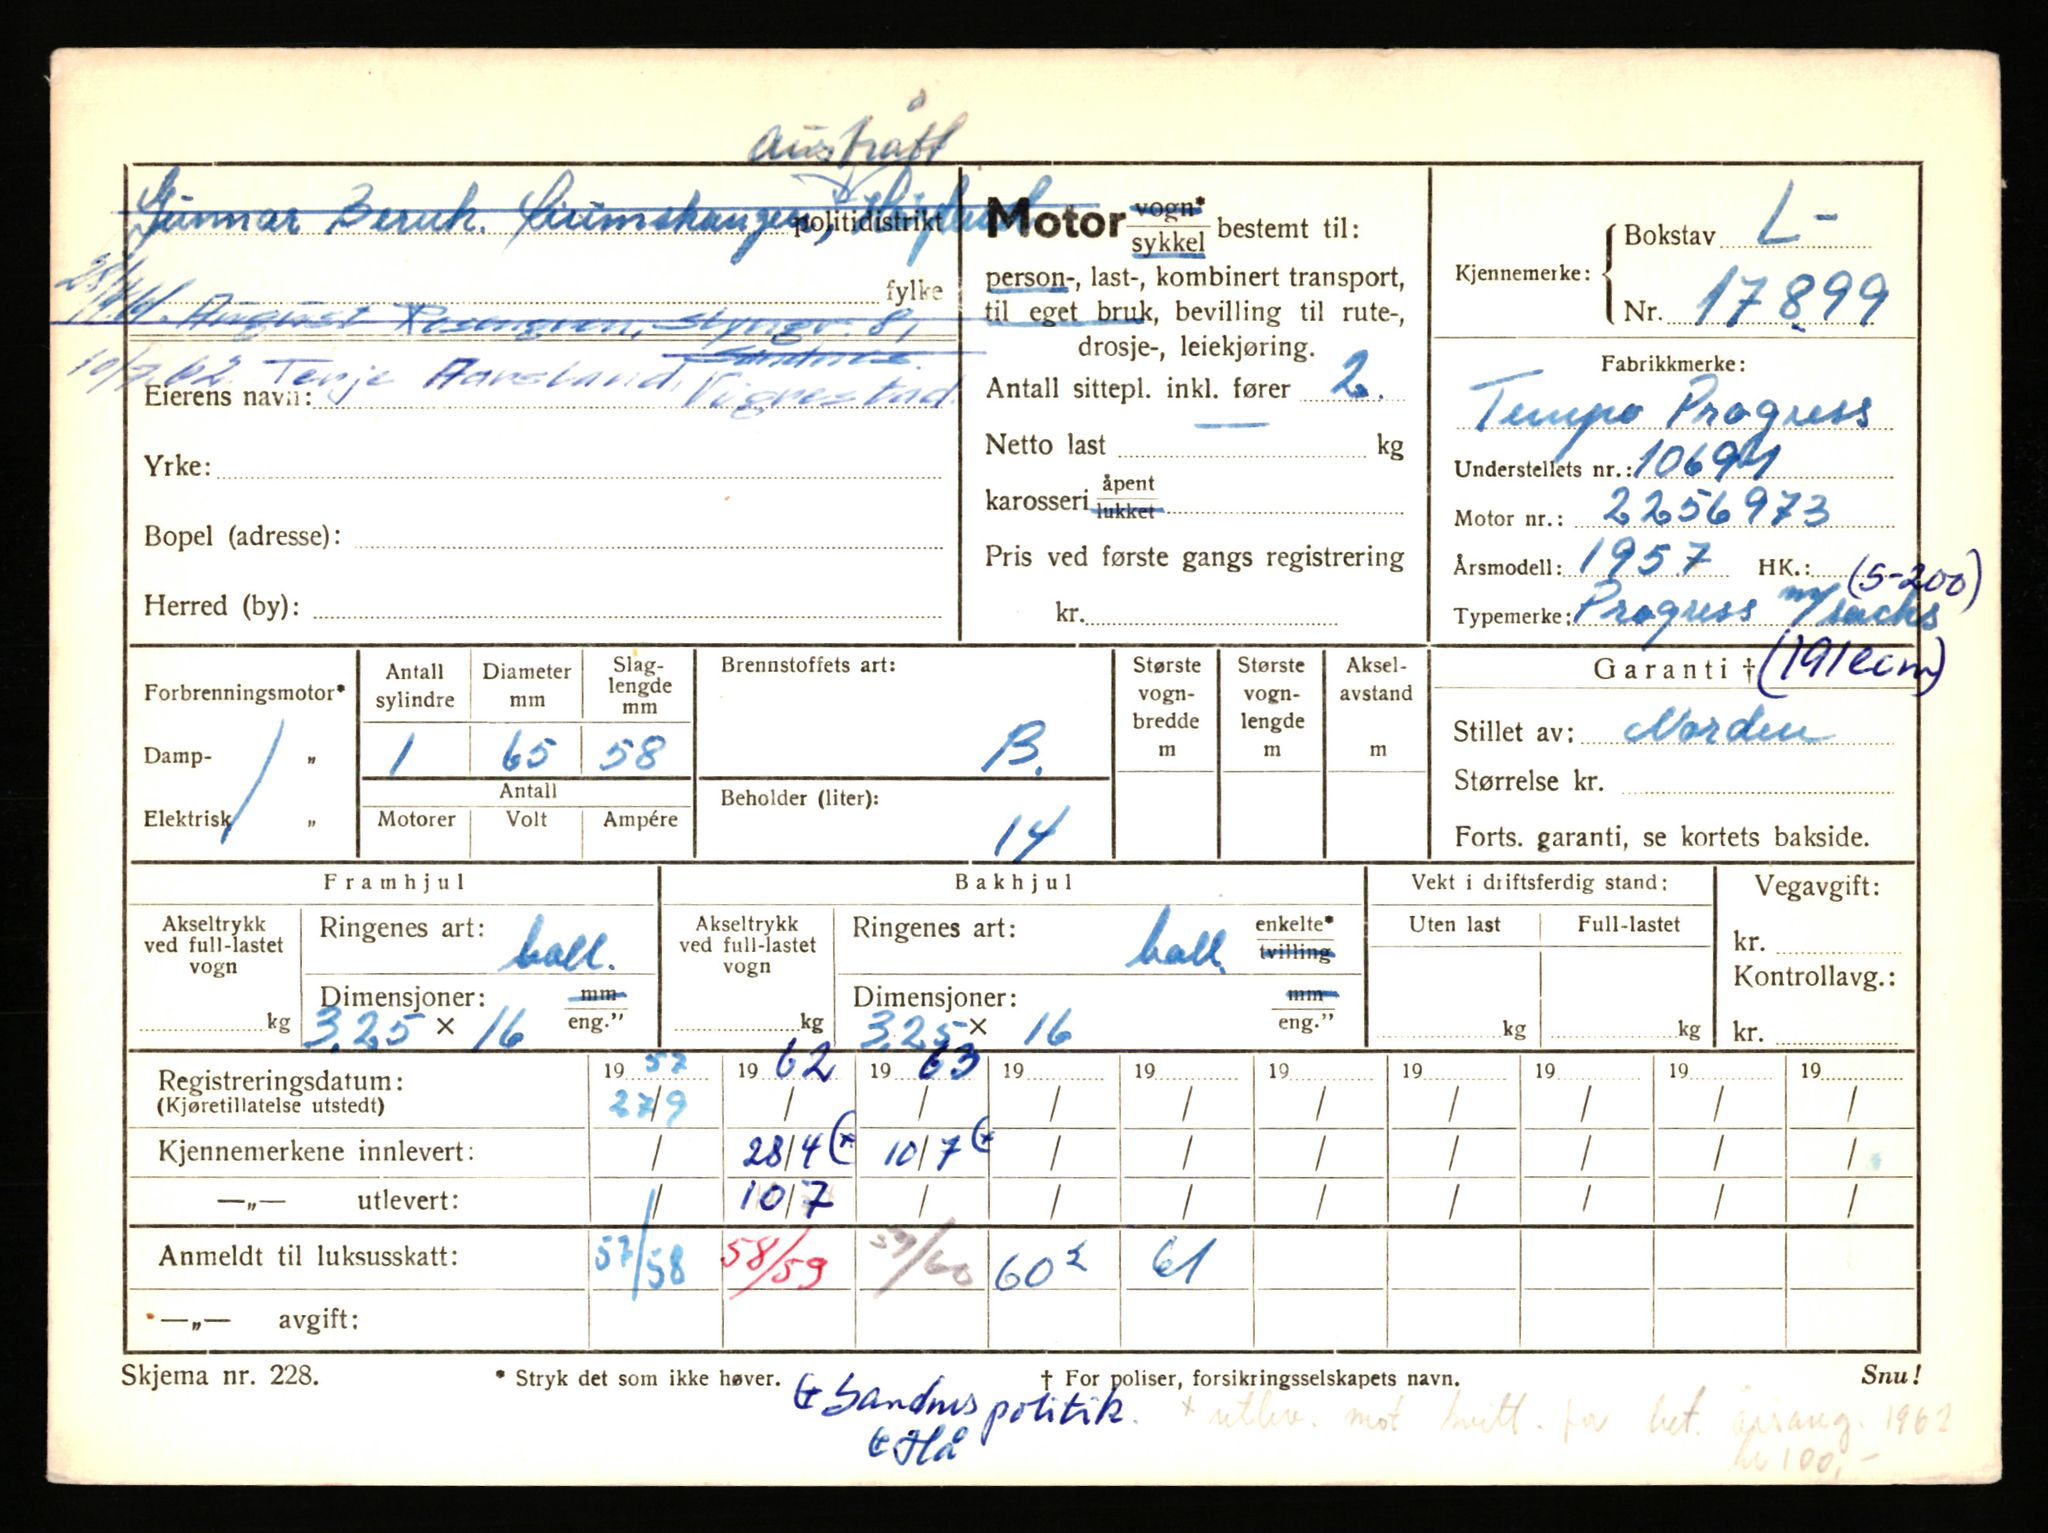 Austrått
Gunnar Bernh. politidistrikt
fylke
28/4 61. August Rosengren, Styrgr. 8,
Sandnes.
10/7 62. Terje Aarsland, Vigrestad.
Eierens navn:
Yrke:
Bopel (adresse):
Herred (by):
Motor vogn*
sykkel bestemt til:
person-, last-, kombinert transport,
til eget bruk, bevilling til rute-,
drosje-, leiekjøring.
Antall sittepl. inkl. fører 2.
Netto last — kg
karosseri åpent
lukket
Pris ved første gangs registrering
kr.
Kjennemerke: Bokstav L-
Nr. 17899
Fabrikkmerke:
Tempo Progress
Understellets nr.: 10694
Motor nr.: 2256973
Årsmodell: 1957 HK.: (5-200)
Typemerke: Progress m/sachs
(191ccm)
Forbrenningsmotor*
Damp- „
Elektrisk „
Antall sylindre
Diameter mm
Slag-lengde mm
1 65 58
Antall
Motorer Volt Ampére
Brennstoffets art:
B.
Beholder (liter):
14
Største vogn-bredde m
Største vogn-lengde m
Aksel-avstand m
Garanti †
Stillet av: Norden
Størrelse kr.
Forts. garanti, se kortets bakside.
Framhjul
Akseltrykk ved full-lastet vogn
kg
Ringenes art: ball.
Dimensjoner: mm
3.25 × 16 eng.”
Bakhjul
Akseltrykk ved full-lastet vogn
kg
Ringenes art: ball. enkelte*
tvilling
Dimensjoner: mm
3.25 × 16 eng.”
Vekt i driftsferdig stand:
Uten last Full-lastet
kg kg
Vegavgift:
kr.
Kontrollavg.:
kr.
Registreringsdatum: 1957 1962 1963 19 19 19 19 19 19 19
(Kjøretillatelse utstedt) 27/9 / / / / / / / / /
Kjennemerkene innlevert: / 28/4 (* 10/7 (* / / / / / / /
—„— utlevert: / 10/7 / / / / / / / /
Anmeldt til luksusskatt: 57/58 58/59 59/60 60² 61
—„— avgift:
Skjema nr. 228. * Stryk det som ikke høver. † For poliser, forsikringsselskapets navn. Snu!
Sandnes politik. × utlev. mot kvitt. for bet. årsavg. 1962
Hå kr 100,-